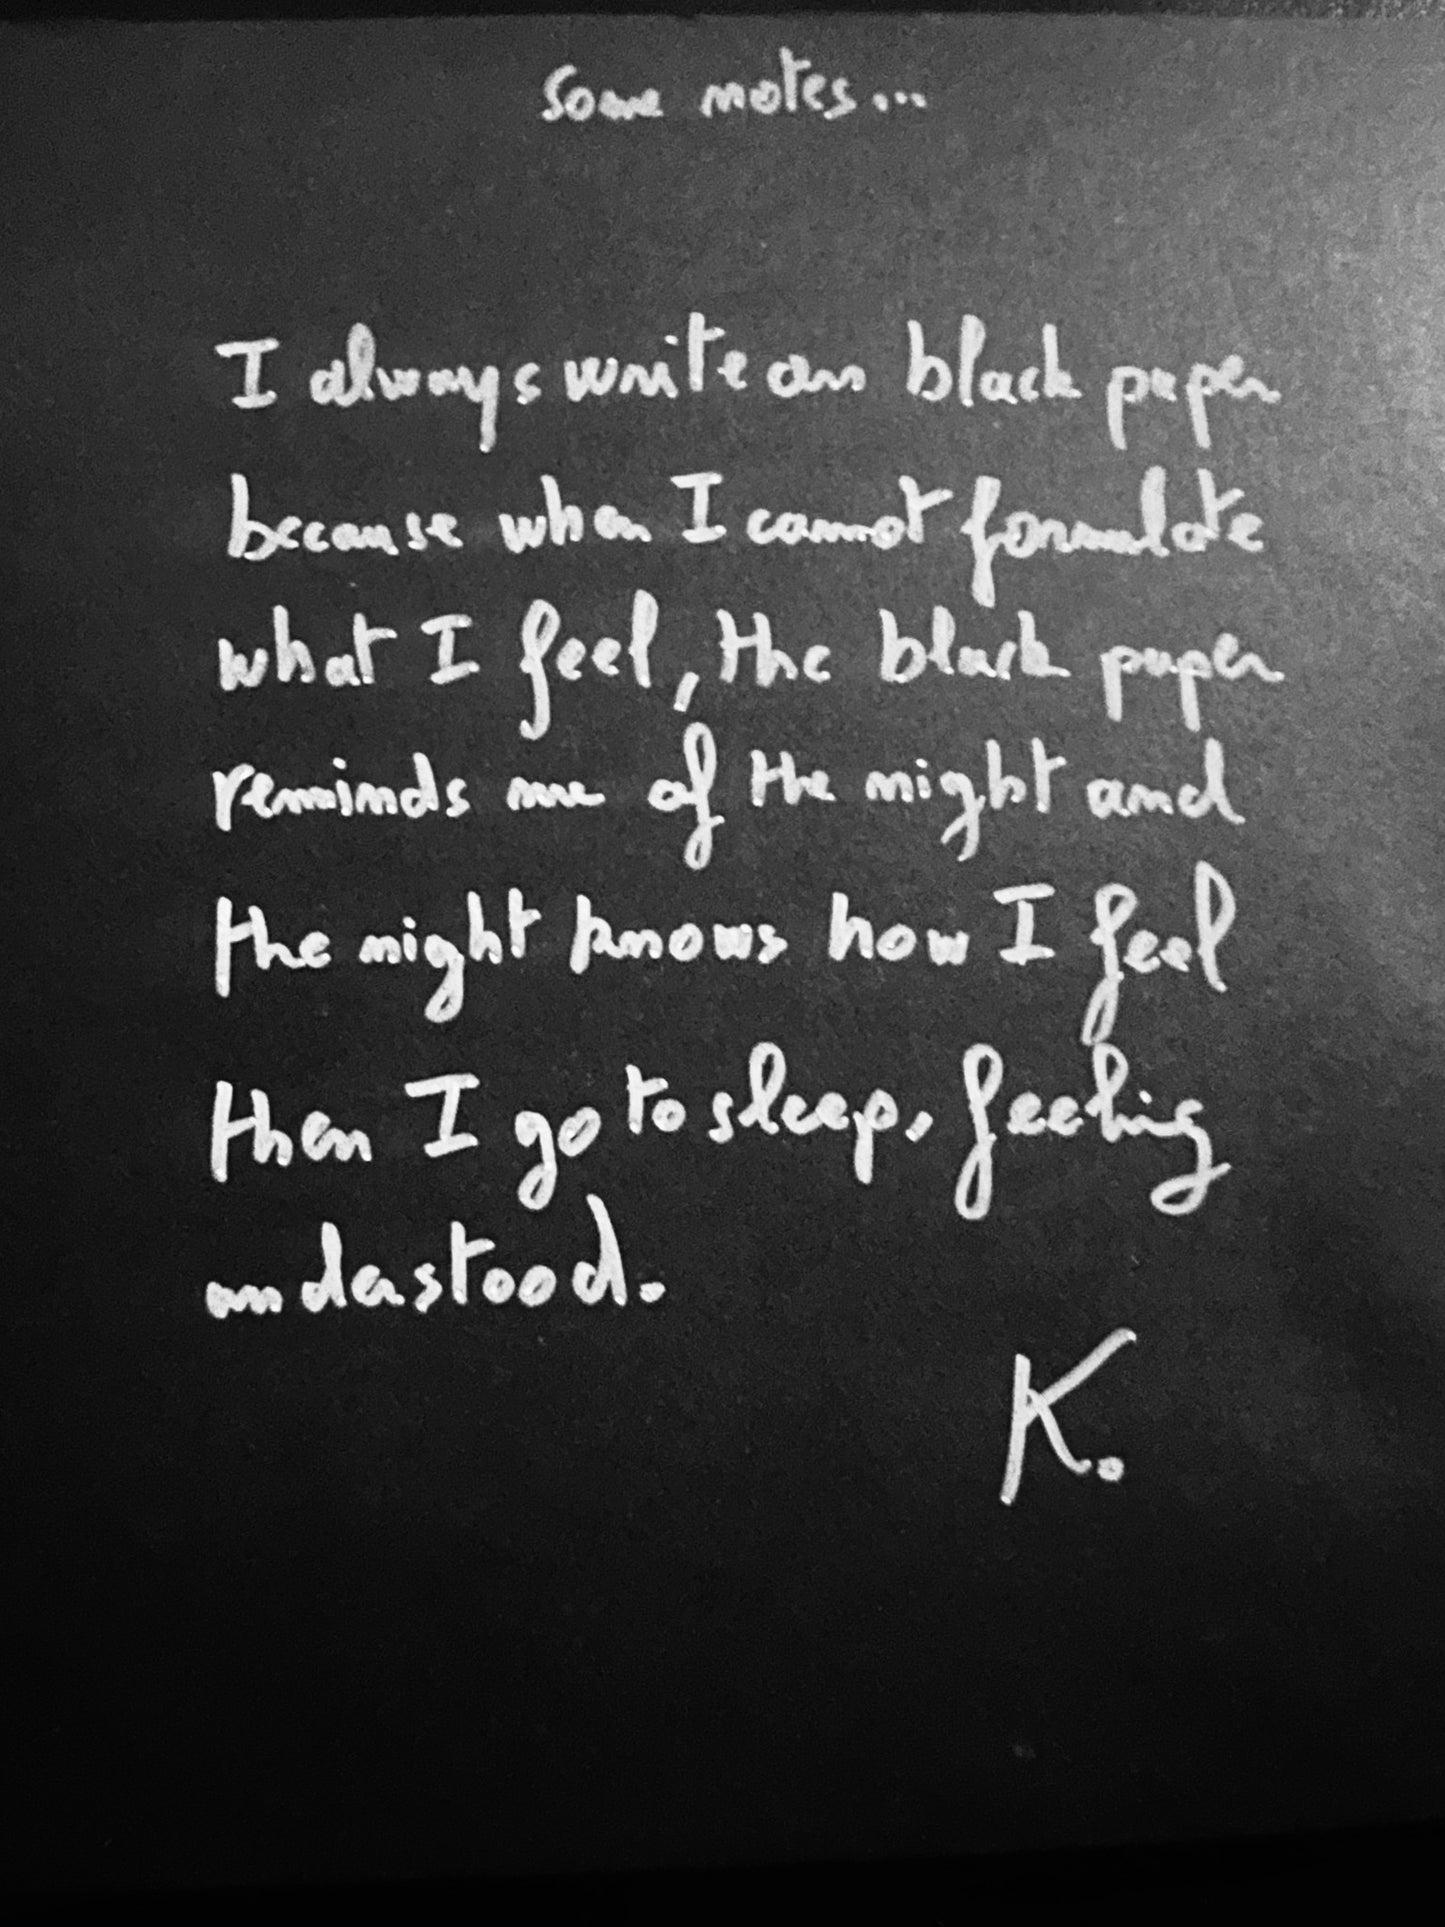 Some notes...
I always write on black paper
because when I cannot formulate
what I feel, the black paper
reminds me of the night and
the night knows how I feel
then I go to sleep, feeling
understood.
K.